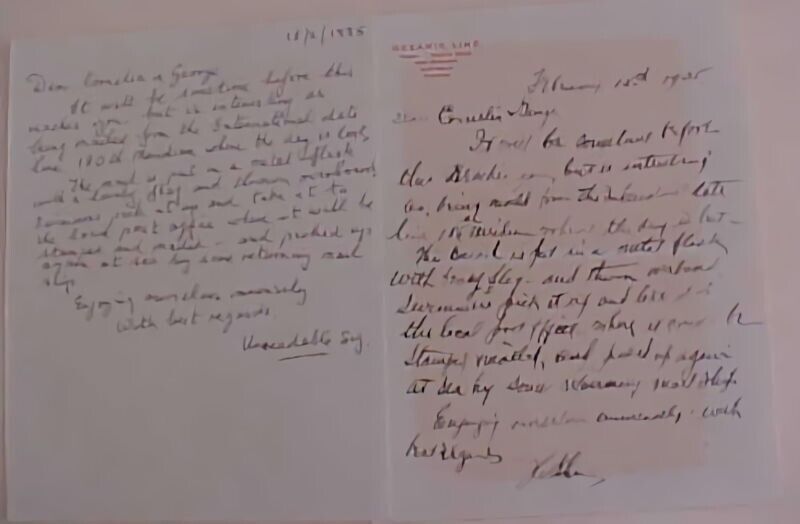 18/2/1935
Dear Cornelia & George
It will be sometime before this
reaches you but is interesting as
being mailed from the International date
line 180th Meridian where the day is lost.
The mail is put in a metal flask
with a lovely flag and thrown overboard,
swimmers pick it up and take it to
the local post office where it will be
stamped and mailed - and picked up
again at sea by some returning mail
ship
Enjoying ourselves immensely
With best regards.
Unreadable Sig.
OCEANIC LINE
February 1935
Cornelia George
It will be sometime before
this reaches you but is interesting
as being mailed from the date
line Meridian where the day is lost -
The is put in a metal flask
With flag - and thrown overboard
Swimmers pick it up and
the local post office where it
Stamped mailed, and picked up again
at sea by some returning mail ship
Enjoying ourselves immensely - with
best regards